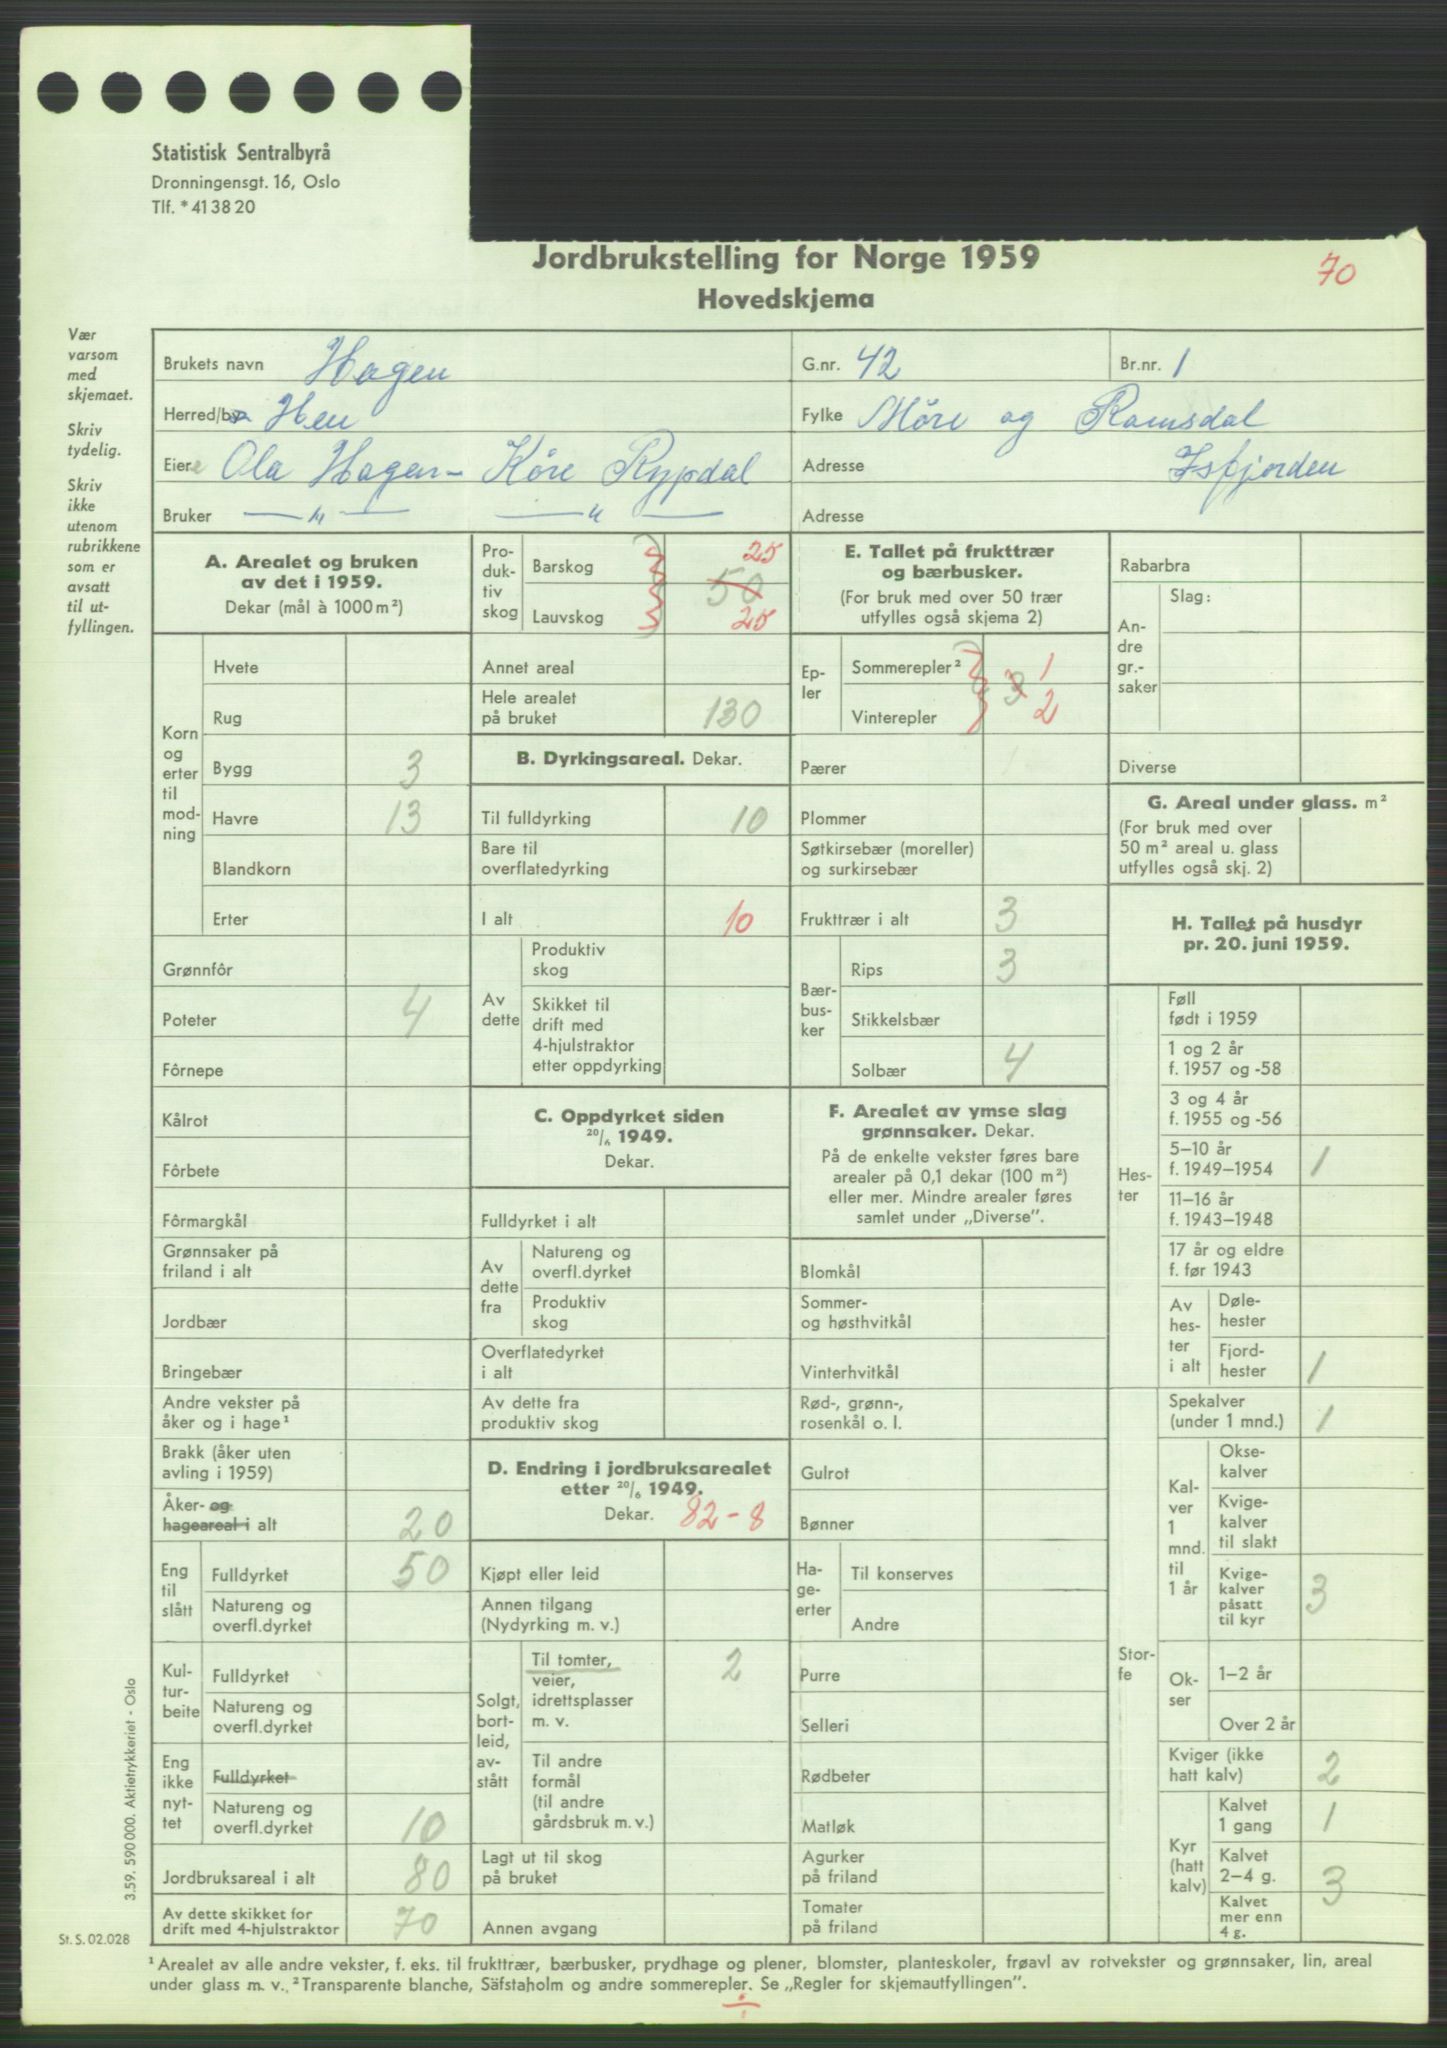 Statistisk Sentralbyrå
Dronningensgt. 16, Oslo
Tlf. *41 38 20
Jordbrukstelling for Norge 1959
70
Hovedskjema
Vær
varsom
med
skjemaet.
Skriv
tydelig.
Skriv
ikke
utenom
rubrikkene
som er
avsatt
til ut-
fyllingen.
Brukets navn Hagen
G.nr. 42
Br.nr. 1
Herred/by Hen
Fylke Møre og Romsdal
Eiere Ola Hagen - Kåre Rypdal
Adresse Isfjorden
Bruker — " — — " —
Adresse
A. Arealet og bruken
av det i 1959.
Dekar (mål à 1000 m²)
Korn
og
erter
til
mod-
ning
Hvete
Rug
Bygg 3
Havre 13
Blandkorn
Erter
Grønnfôr
Poteter 4
Fôrnepe
Kålrot
Fôrbete
Fôrmargkål
Grønnsaker på
friland i alt
Jordbær
Bringebær
Andre vekster på
åker og i hage¹
Brakk (åker uten
avling i 1959)
Åker- og
hageareal i alt 20
Eng
til
slått
Fulldyrket 50
Natureng og
overfl.dyrket
Kul-
tur-
beite
Fulldyrket
Natureng og
overfl.dyrket
Eng
ikke
nyt-
tet
Fulldyrket
Natureng og
overfl.dyrket 10
Jordbruksareal i alt 80
Av dette skikket for
drift med 4-hjulstraktor 70
Pro-
duk-
tiv
skog
Barskog 25
50
Lauvskog 25
Annet areal
Hele arealet
på bruket 130
B. Dyrkingsareal. Dekar.
Til fulldyrking 10
Bare til
overflatedyrking
I alt 10
Av
dette
Produktiv
skog
Skikket til
drift med
4-hjulstraktor
etter oppdyrking
C. Oppdyrket siden
20/6 1949.
Dekar.
Fulldyrket i alt
Av
dette
fra
Natureng og
overfl.dyrket
Produktiv
skog
Overflatedyrket
i alt
Av dette fra
produktiv skog
D. Endring i jordbruksarealet
etter 20/6 1949.
Dekar. 82-8
Kjøpt eller leid
Annen tilgang
(Nydyrking m. v.)
Solgt,
bort-
leid,
av-
stått
Til tomter,
veier,
idrettsplasser
m. v. 2
Til andre
formål
(til andre
gårdsbruk m. v.)
Lagt ut til skog
på bruket
Annen avgang
E. Tallet på frukttrær
og bærbusker.
(For bruk med over 50 trær
utfylles også skjema 2)
Ep-
ler
Sommerepler² 1
3
Vinterepler 2
Pærer
Plommer
Søtkirsebær (moreller)
og surkirsebær
Frukttrær i alt 3
Bær-
bus-
ker
Rips 3
Stikkelsbær
Solbær 4
F. Arealet av ymse slag
grønnsaker. Dekar.
På de enkelte vekster føres bare
arealer på 0,1 dekar (100 m²)
eller mer. Mindre arealer føres
samlet under „Diverse”.
Blomkål
Sommer-
og høsthvitkål
Vinterhvitkål
Rød-, grønn-,
rosenkål o. l.
Gulrot
Bønner
Ha-
ge-
erter
Til konserves
Andre
Purre
Selleri
Rødbeter
Matløk
Agurker
på friland
Tomater
på friland
Rabarbra
An-
dre
gr.-
saker
Slag:
Diverse
G. Areal under glass. m²
(For bruk med over
50 m² areal u. glass
utfylles også skj. 2)
H. Tallet på husdyr
pr. 20. juni 1959.
Hes-
ter
Føll
født i 1959
1 og 2 år
f. 1957 og -58
3 og 4 år
f. 1955 og -56
5–10 år
f. 1949–1954 1
11–16 år
f. 1943–1948
17 år og eldre
f. før 1943
Av
hes-
ter
i alt
Døle-
hester
Fjord-
hester 1
Stor-
fe
Spekalver
(under 1 mnd.) 1
Kal-
ver
1
mnd.
til
1 år
Okse-
kalver
Kvige-
kalver
til slakt
Kvige-
kalver
påsatt
til kyr 3
Ok-
ser
1–2 år
Over 2 år
Kviger (ikke
hatt kalv) 2
Kyr
(hatt
kalv)
Kalvet
1 gang 1
Kalvet
2–4 g. 3
Kalvet
mer enn
4 g.
3.59. 590 000. Aktietrykkeriet - Oslo
St. S. 02.028
¹ Arealet av alle andre vekster, f. eks. til frukttrær, bærbusker, prydhage og plener, blomster, planteskoler, frøavl av rotvekster og grønnsaker, lin, areal
under glass m. v. ² Transparente blanche, Säfstaholm og andre sommerepler. Se „Regler for skjemautfyllingen”.